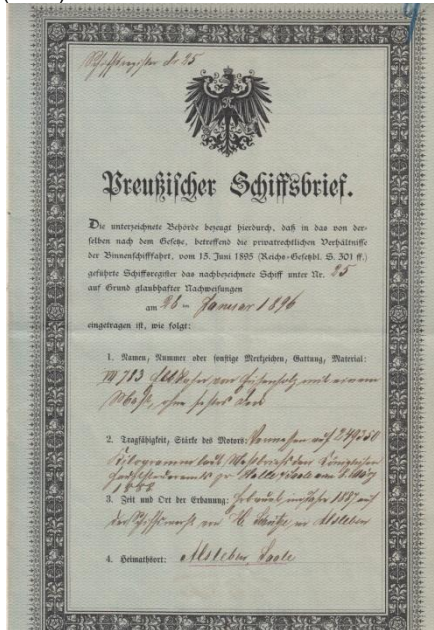 Schiffsregister Nr 25
Preußischer Schiffsbrief.
Die unterzeichnete Behörde bezeugt hierdurch, daß in das von der-
selben nach dem Gesetze, betreffend die privatrechtlichen Verhältnisse
der Binnenschifffahrt, vom 15. Juni 1895 (Reichs-Gesetzbl. S. 301 ff.)
geführte Schiffsregister das nachbezeichnete Schiff unter Nr. 25
auf Grund glaubhafter Nachweisungen
am 28 ten Januar 1896
eingetragen ist, wie folgt:
1. Namen, Nummer oder sonstige Merkzeichen, Gattung, Material:
783 mit einem
Mast, ohne festes Deck
2. Tragfähigkeit, Stärke des Motors: Vermessen auf 249550
Kilogramm laut Meßbrief des Königlichen
Halle
3. Zeit und Ort der Erbauung: Erbaut im Jahre 1887 auf
der Schiffswerft von in Alsleben
4. Heimathsort: Alsleben, Saale